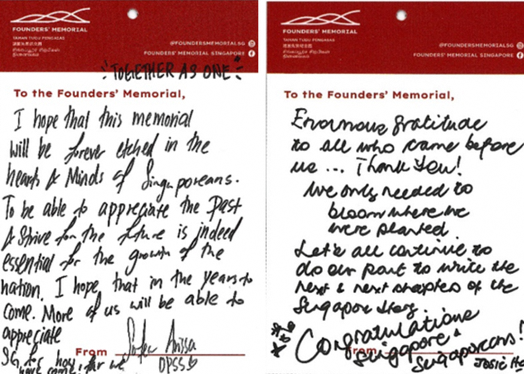 FOUNDERS' MEMORIAL
TAMAN TUGU PENGASAS
@FOUNDERSMEMORIALSG
FOUNDERS' MEMORIAL SINGAPORE
"TOGETHER AS ONE"
To the Founders' Memorial,
I hope that this memorial
will be forever etched in the
hearts & Minds of Singaporeans.
To be able to appreciate the Past
& Strive for the future is indeed
essential for the growth of the
nation. I hope that in the years to
come. More of us will be able to
appreciate
how
From
FOUNDERS' MEMORIAL
TAMAN TUGU PENGASAS
@FOUNDERSMEMORIALSG
FOUNDERS' MEMORIAL SINGAPORE
To the Founders' Memorial,
Enormous Gratitude
to all who came before
us ... Thank You!
We only needed to
bloom where we
were planted.
Let's all continue to
do our part to write the
next & next chapters of the
Singapore Story.
Congratulations
From
Singapore &
Singaporeans!
Josie